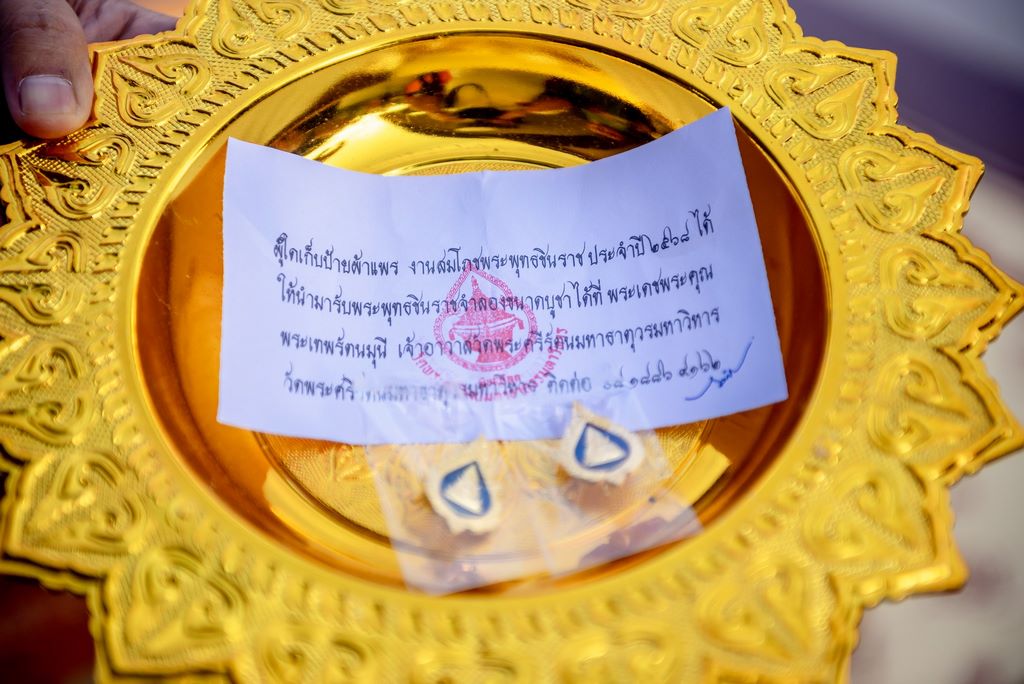 ผู้ใดเก็บป้ายผ้าแพร งานสมโภชพระพุทธชินราช ประจำปี ๒๕๖๘ ได้
ให้นำมารับพระพุทธชินราชจำลองขนาดบูชา ได้ที่ พระเดชพระคุณ
พระเทพรัตนมุนี เจ้าอาวาสวัดพระศรีรัตนมหาธาตุวรมหาวิหาร
วัดพระศรีรัตนมหาธาตุวรมหาวิหาร ติดต่อ